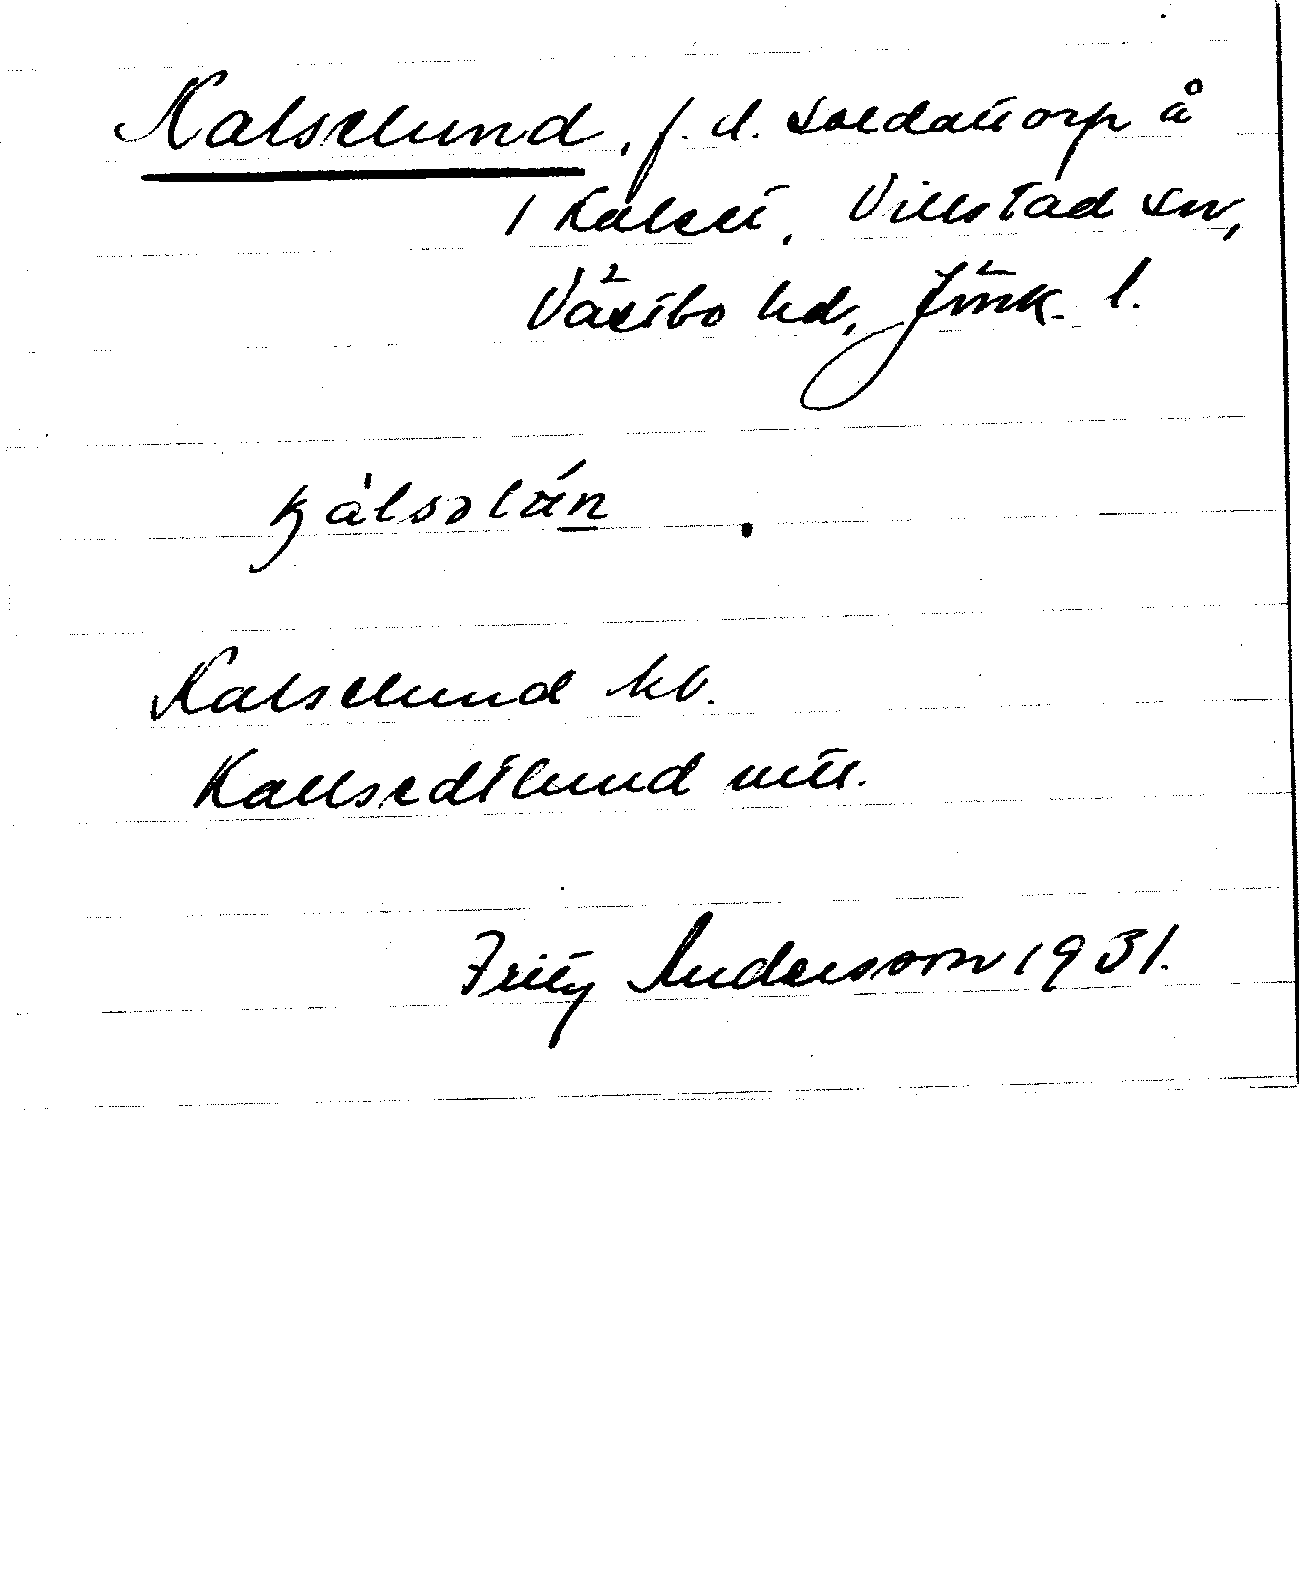 Kalselund, f. d. soldattorp å
1 Kalset, Villstad sn,
Västbo hd, Jönk. l.
kàlsɔlán
Kalselund kb.
Kallsedtlund mtl.
Fritz Andersson 1931.